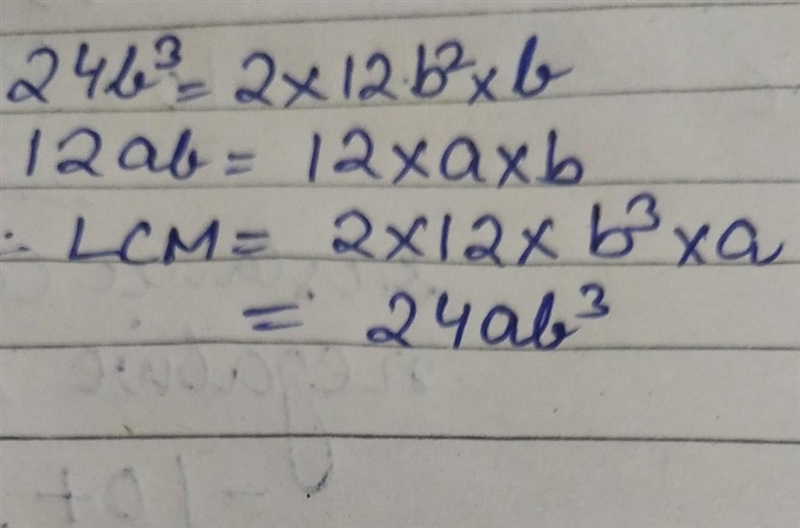 24b³ = 2×12·b²×b
12ab = 12×a×b
∴ LCM = 2×12×b³×a
= 24ab³